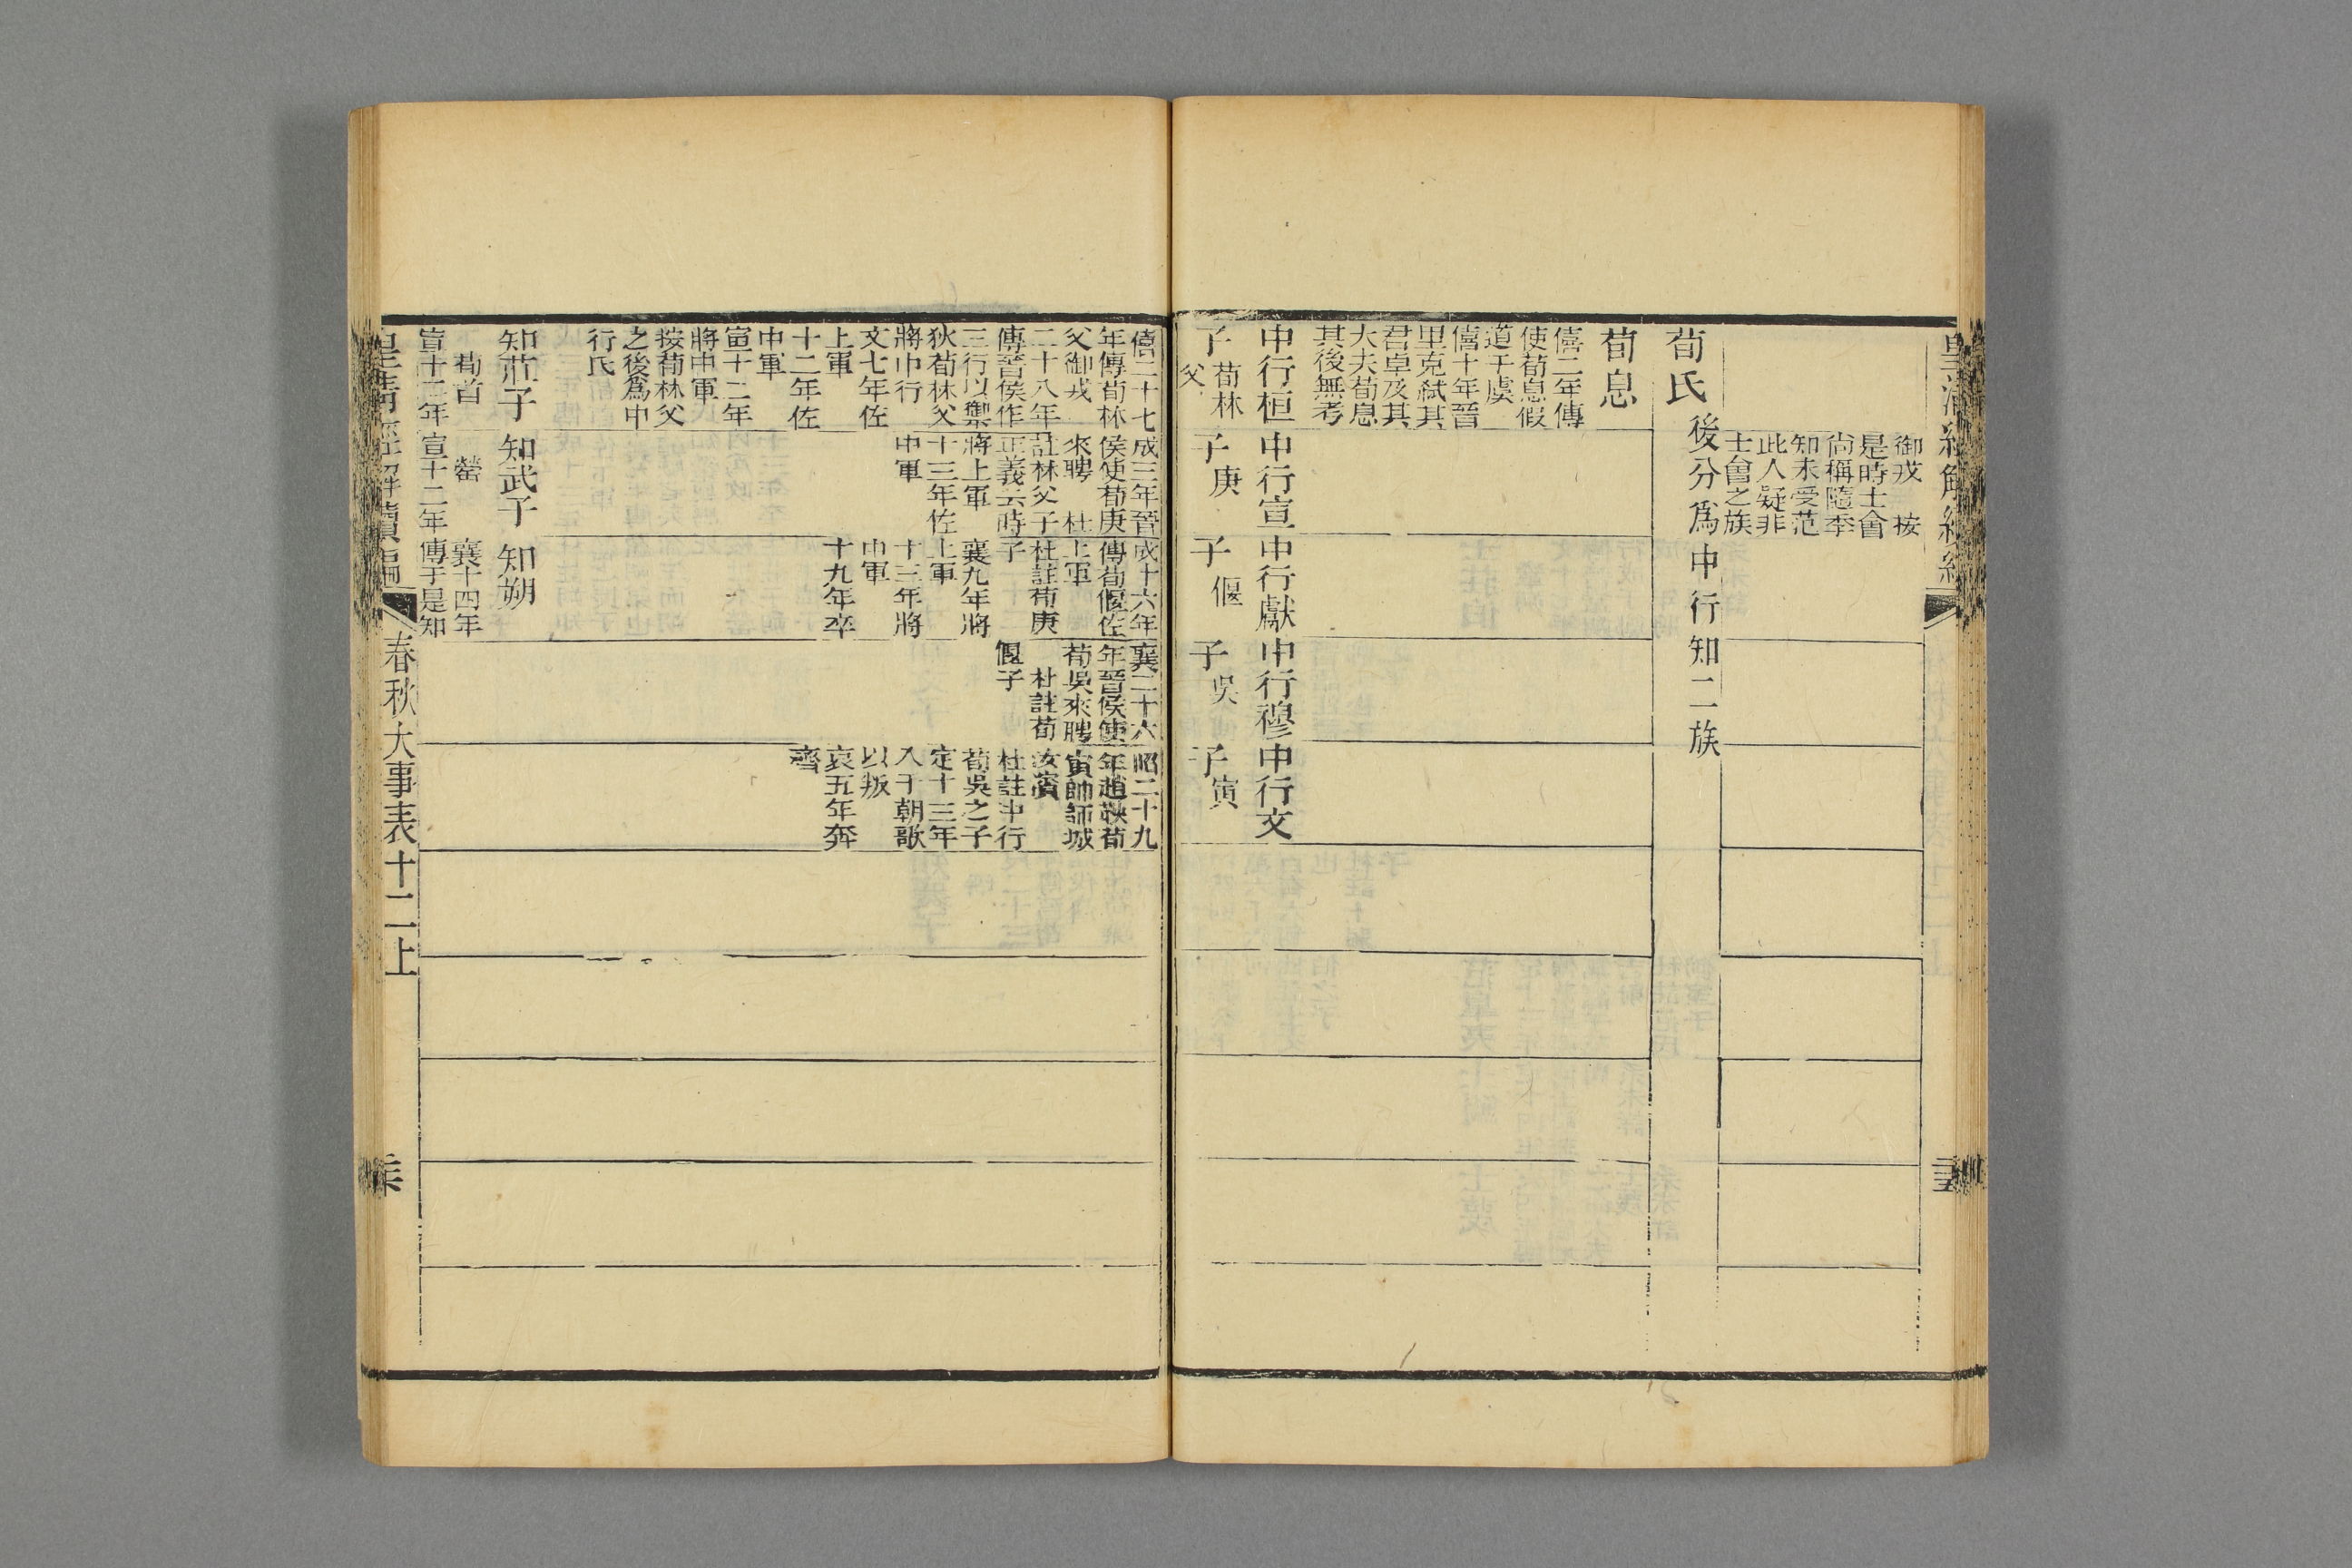 御戎　按
是時士會
尚稱隨季
知未受范
此人疑非
士會之族
荀氏後分爲中行知二族
荀息
僖二年傳
使荀息假
道于虞
僖十年晉
里克弒其
君卓及其
大夫荀息
其後無考
中行桓
子荀林
父
僖二十七
年傳荀林
父御戎
二十八年
傳晉侯作
三行以禦
狄荀林父
將中行
文七年佐
上軍
十二年佐
中軍
宣十二年
將中軍
按荀林父
之後爲中
行氏
中行宣
子庚
成三年晉
侯使荀庚
來聘　杜
註林父子
正義云時
將上軍
十三年佐
中軍
中行獻
子偃
成十六年
傳荀偃佐
上軍
杜註荀庚
子
襄九年將
上軍
十三年將
中軍
十九年卒
中行穆
子吳
襄二十六
年晉侯使
荀吳來聘
杜註荀
偃子
中行文
子寅
昭二十九
年趙鞅荀
寅帥師城
汝濱
杜註中行
荀吳之子
定十三年
入于朝歌
以叛
哀五年奔
齊
知莊子
荀首
宣十二年
知武子
罃
宣十二年
知朔
襄十四年
傳于是知
皇淸經解續編
春秋大事表十二上